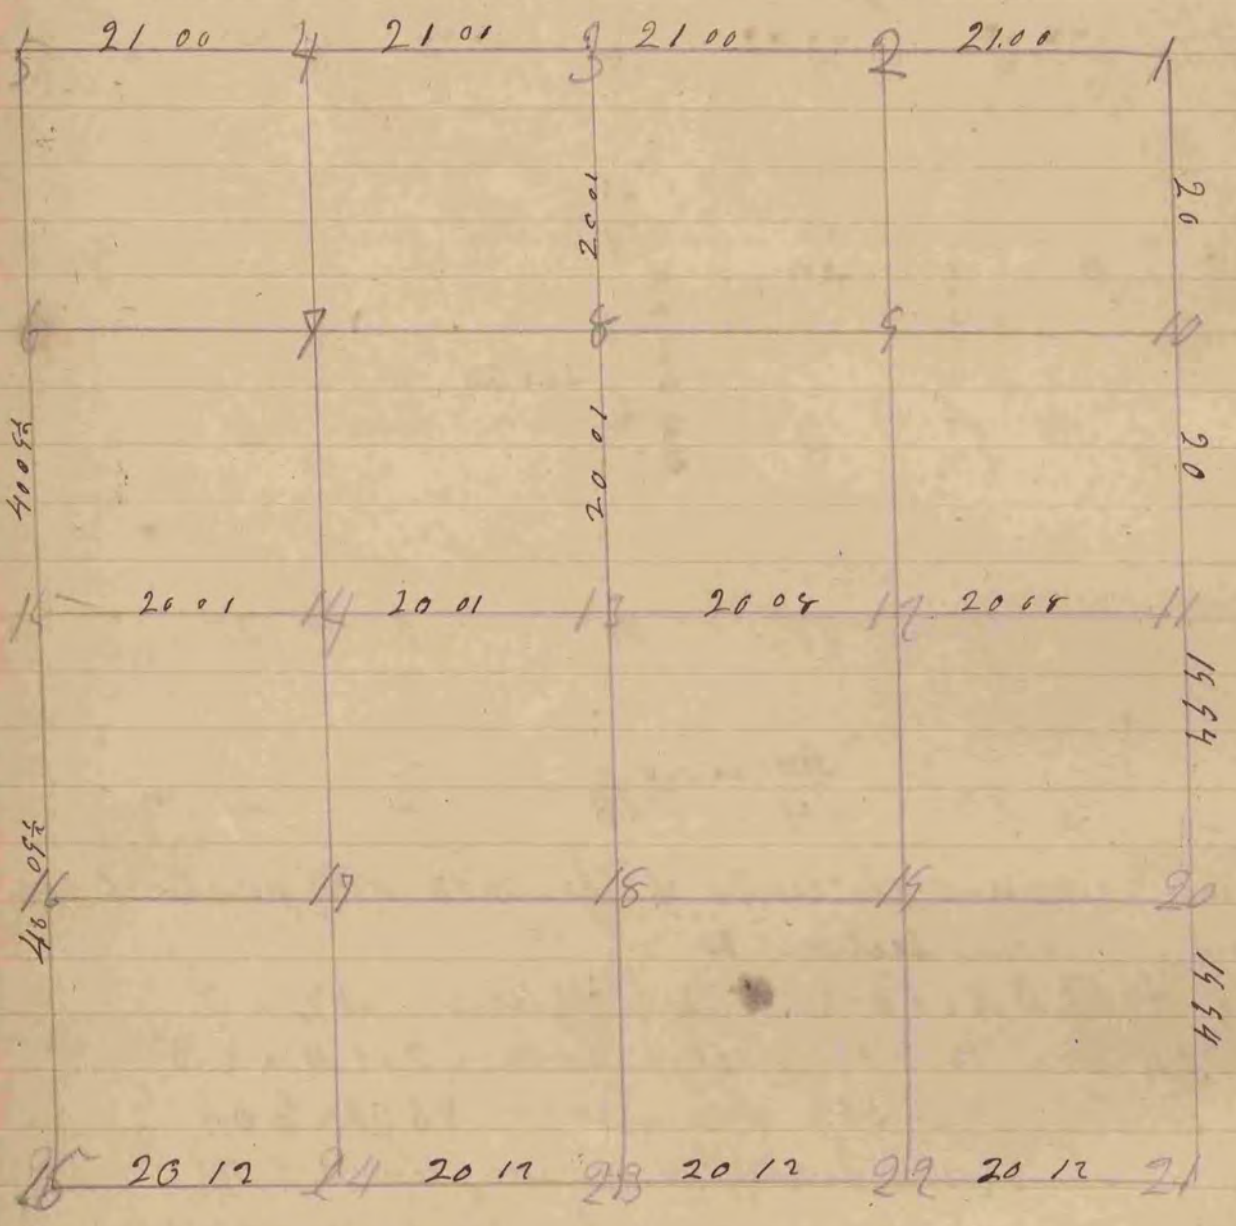 5 21 00 4 21 01 3 21 00 2 21.00 1
20 01
20
6 7 8 9 10
40 09½
20 01
20
15 20 01 14 20 01 13 20 08 12 20 08 11
19 94
40 09½
16 17 18 19 20
19 94
25 20 12 24 20 12 23 20 12 22 20 12 21